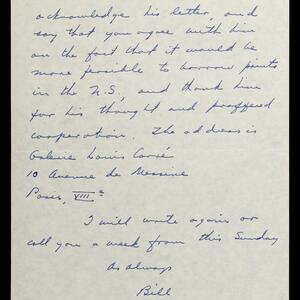 acknowledge his letter, and
say that you agree with him
on the fact that it would be
more feasible to borrow prints
in the U.S., and thank him
for his thought and proffered
cooperation. The address is
Galerie Louis Carré
10 Avenue de Messine
Paris, VIII e
I will write again or
call you a week from this Sunday
As always
Bill